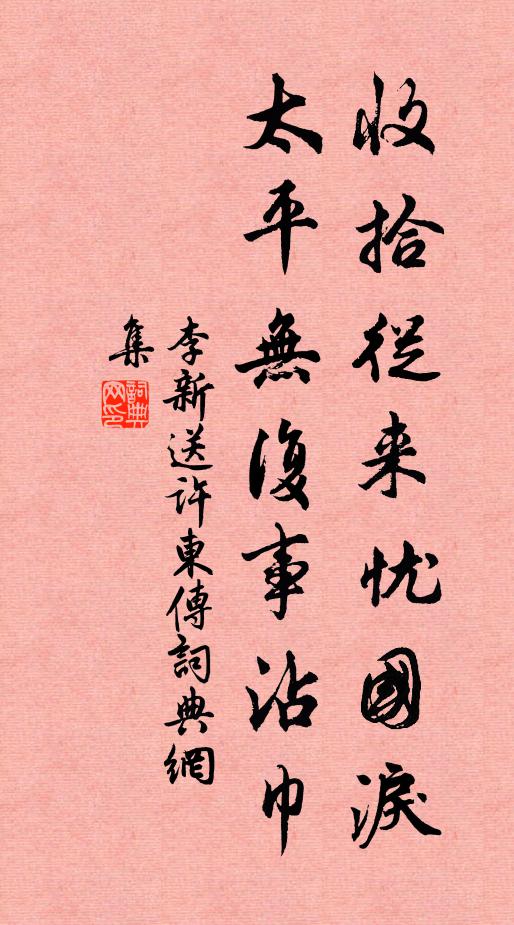 收拾從来忧國淚
太平無復事沾巾
李新送許東傳詞典網
集
詞典網印